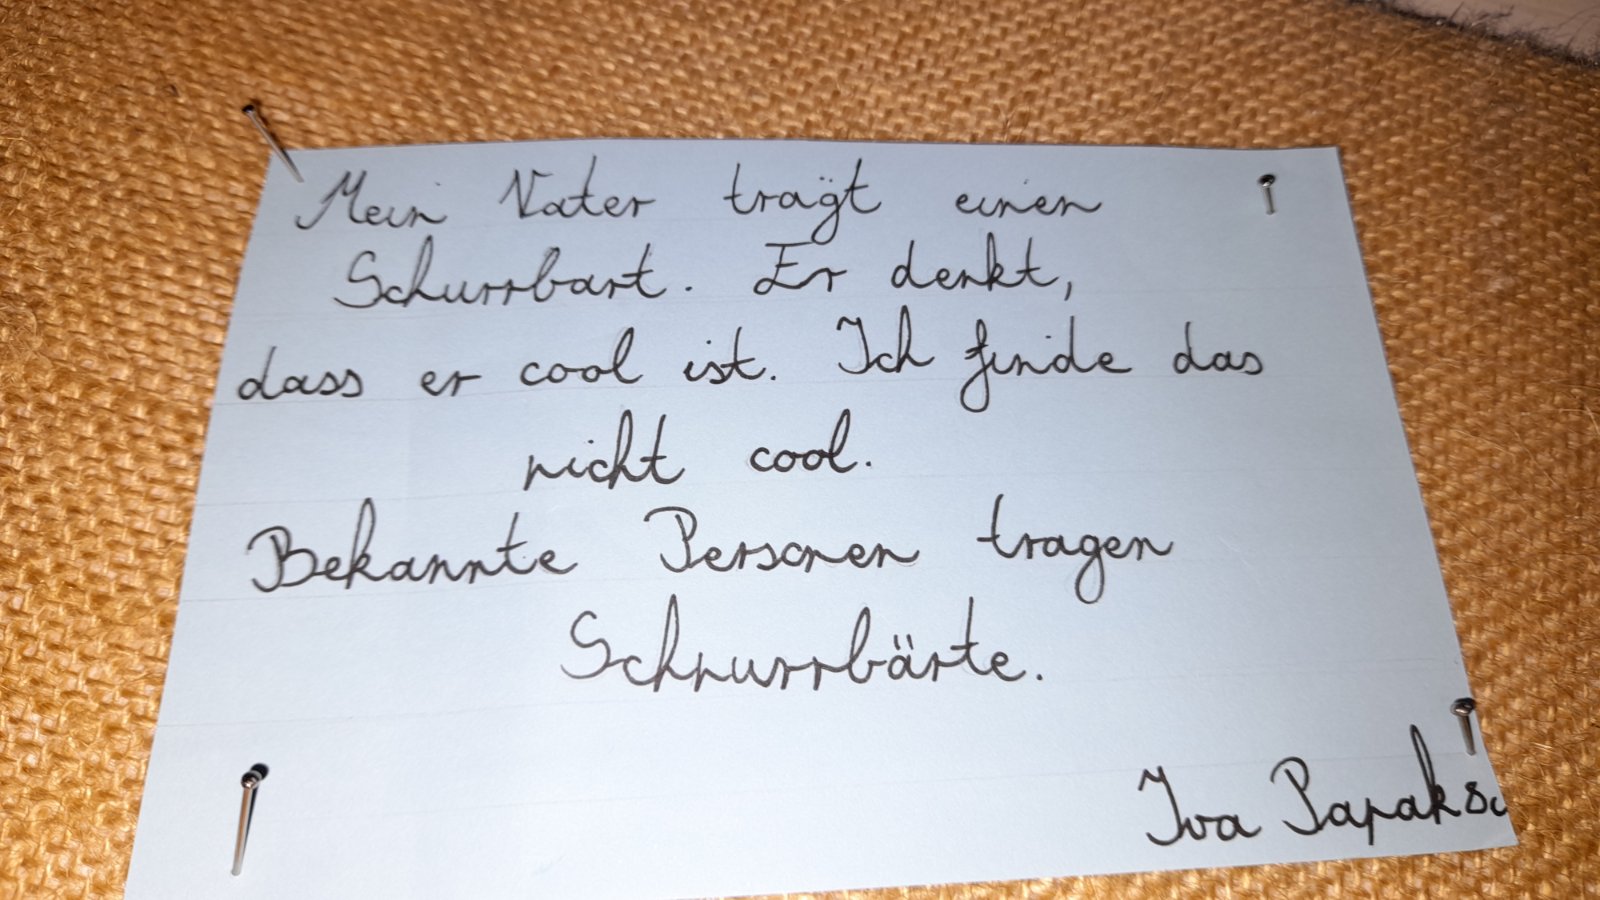 Mein Vater trägt einen
Schurrbart. Er denkt,
dass er cool ist. Ich finde das
nicht cool.
Bekannte Personen tragen
Schnurrbärte.
Iva